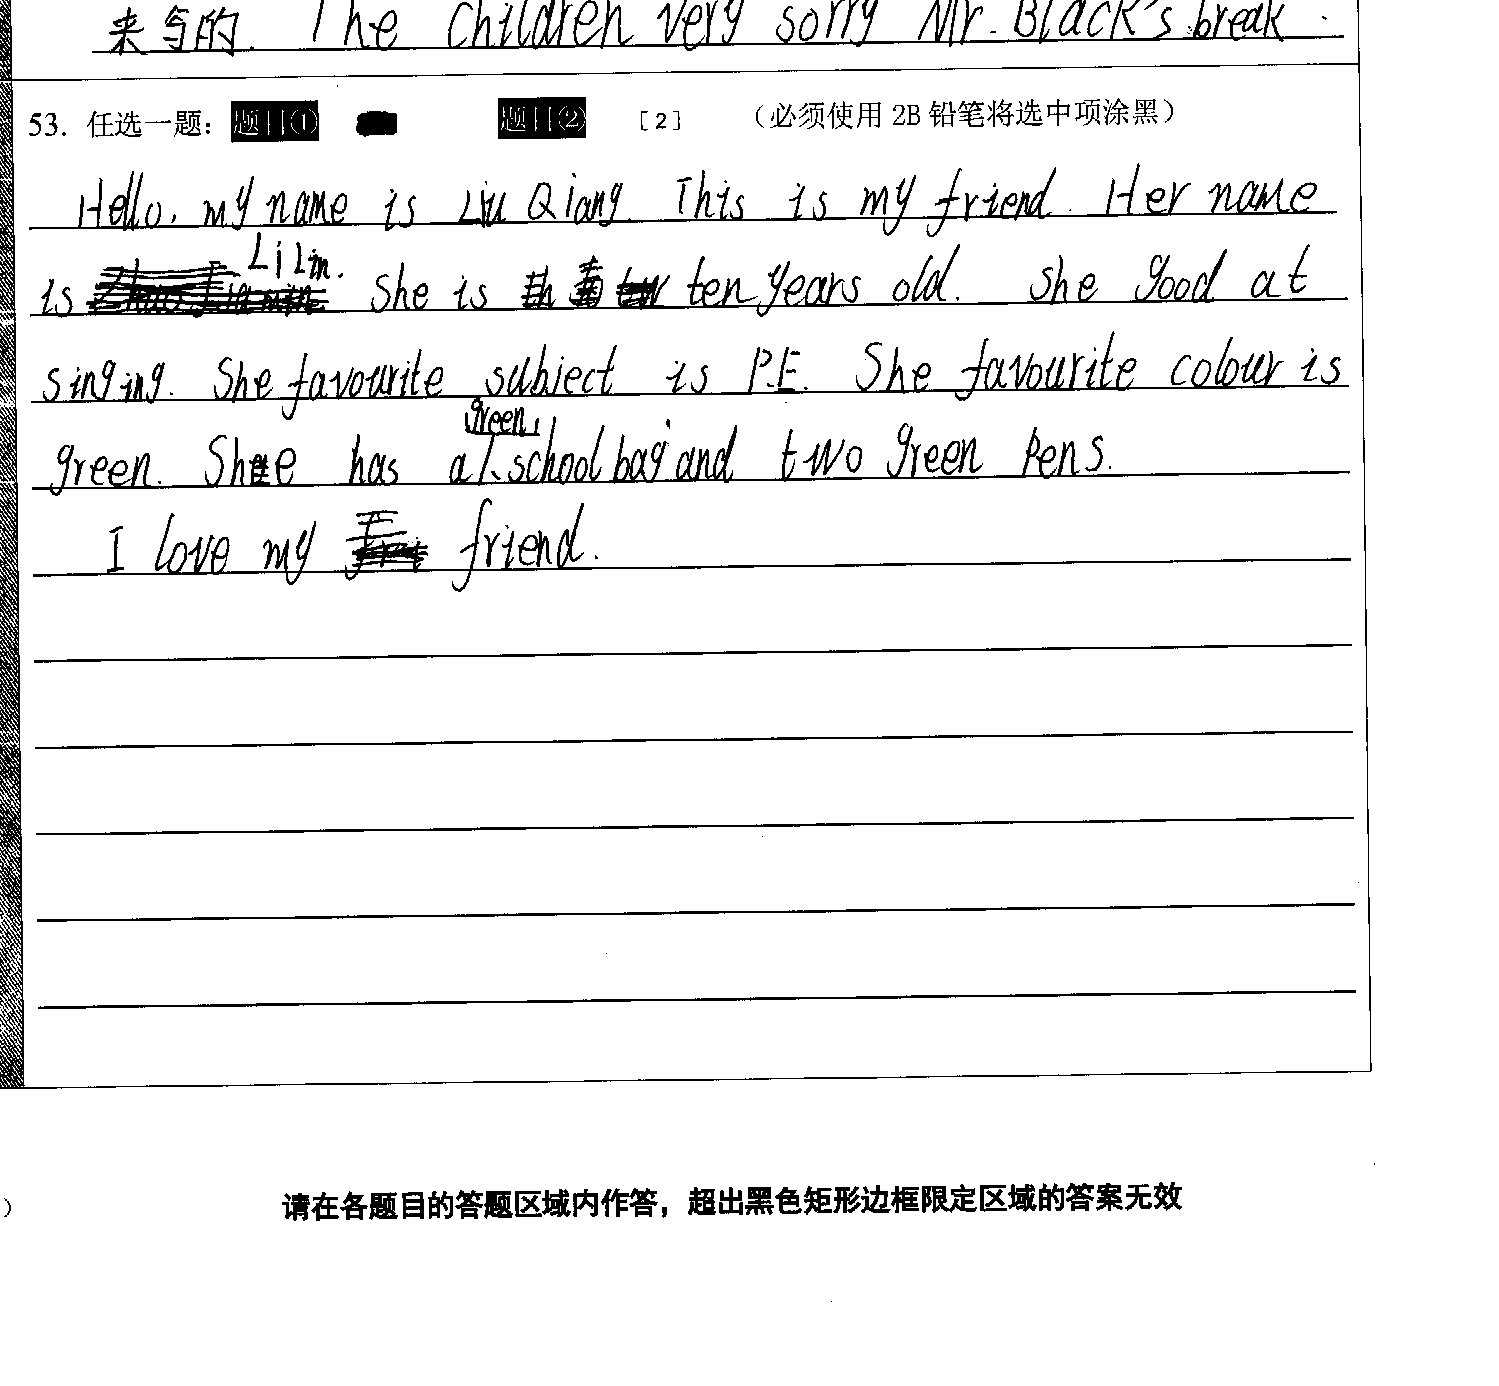 来写的. The children very sorry Mr. Black's break.
53. 任选一题： 题目① 题目② [2] （必须使用 2B 铅笔将选中项涂黑）
Hello, my name is Liu Qiang. This is my friend. Her name
is Li Lin. She is ten years old. She good at
singing. She favourite subject is P.E. She favourite colour is
green. She has a green school bag and two green pens.
I love my friend.
）
请在各题目的答题区域内作答，超出黑色矩形边框限定区域的答案无效